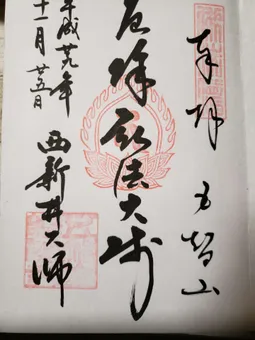 奉拝 五智山
厄除弘法大師
平成廿九年
十一月廿五日
西新井大師